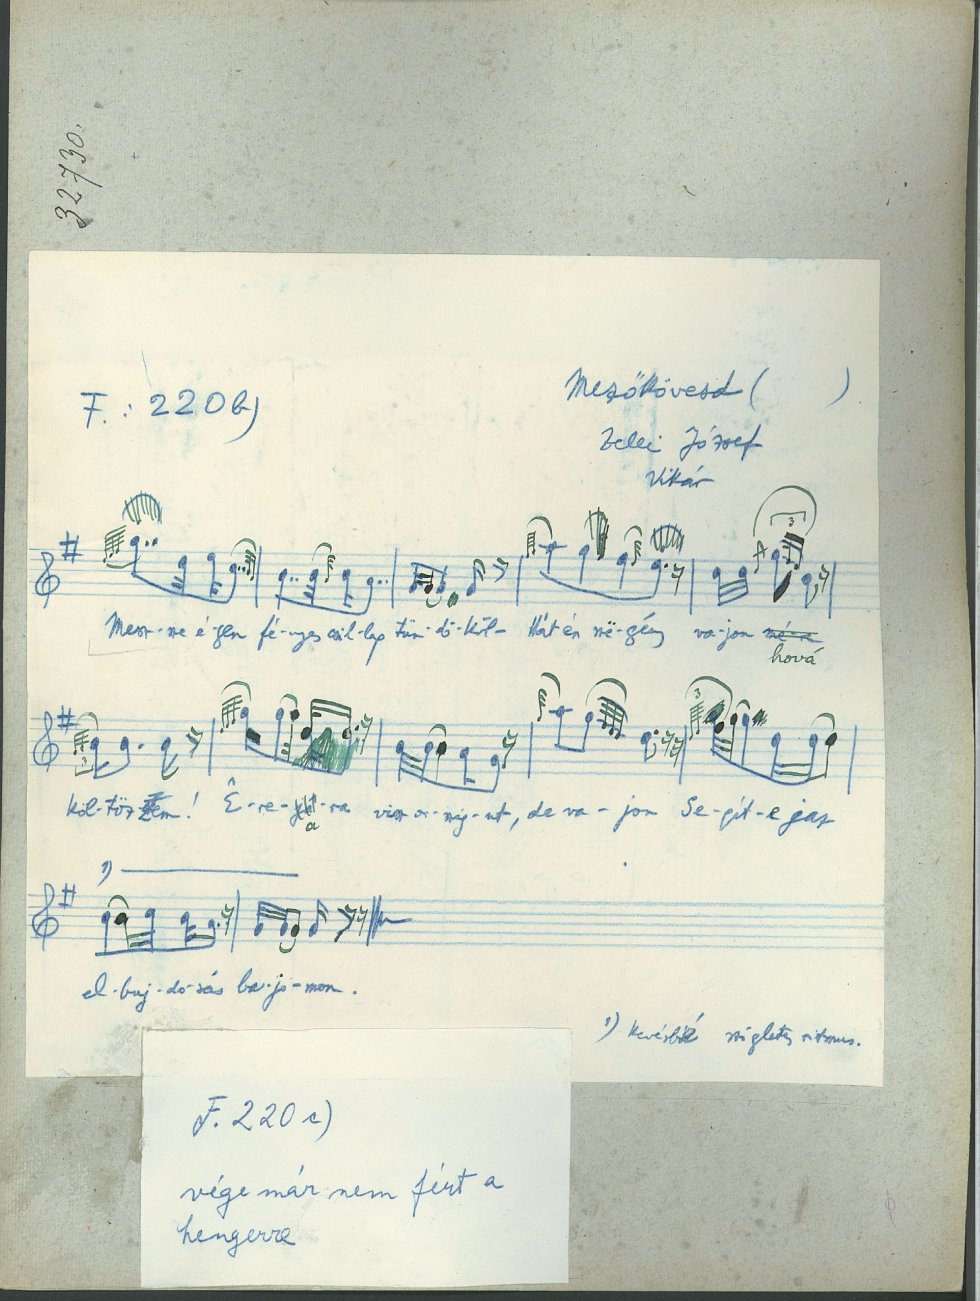 32730.
F.: 220 b)
Mezőkövesd ( )
József
Vikár
3
Mesz-sze é-gen fé-nyes csil-lag tün-dö-köl- Hát én sze-gény va-jon
hová
3
Köl-töz-zem! Ê-re- -ra visz a- , de va-jon Se-gít-e
a
1)
el-buj-do-sás ba-jo-mon.
1) Kevésbé szigletes ritmus.
F. 220 c)
vége már nem fért a
hengerre